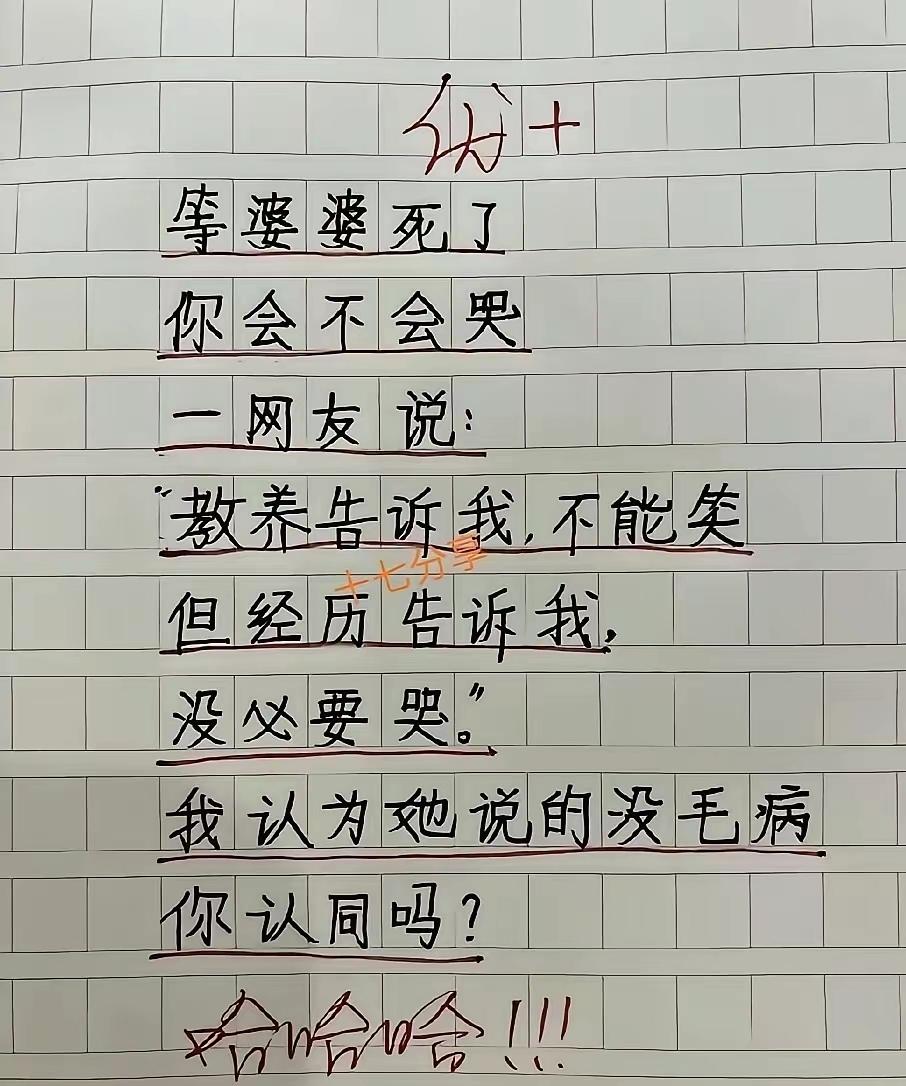 优+
等婆婆死了
你会不会哭
一网友说:
“教养告诉我,不能笑
十七分享
但经历告诉我,
没必要哭。”
我认为她说的没毛病
你认同吗?
哈哈哈!!!